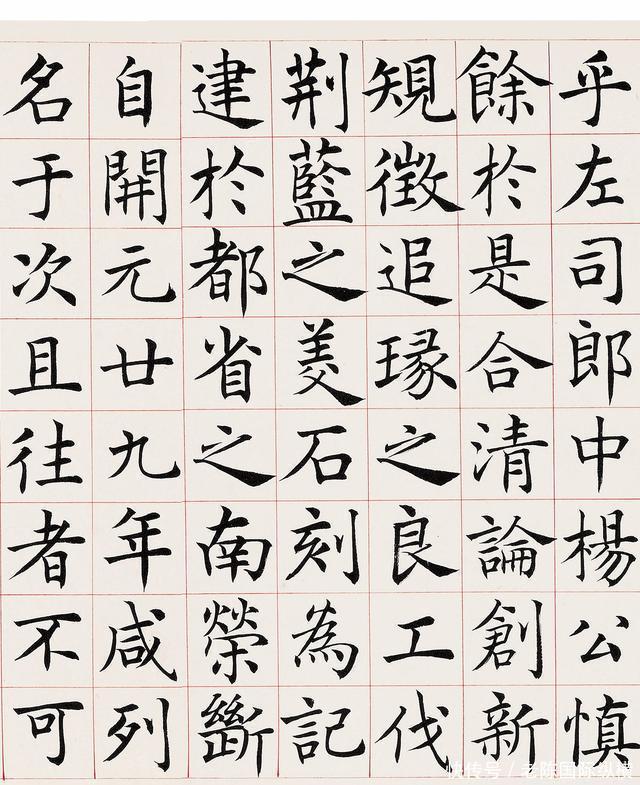 乎左司郎中楊公慎
餘於是合清論創新
規徵追琢之良工伐
荆藍之美石刻為記
建於都省之南榮斷
自開元廿九年咸列
名于次且往者不可
快传号 / 老陈国际纵横